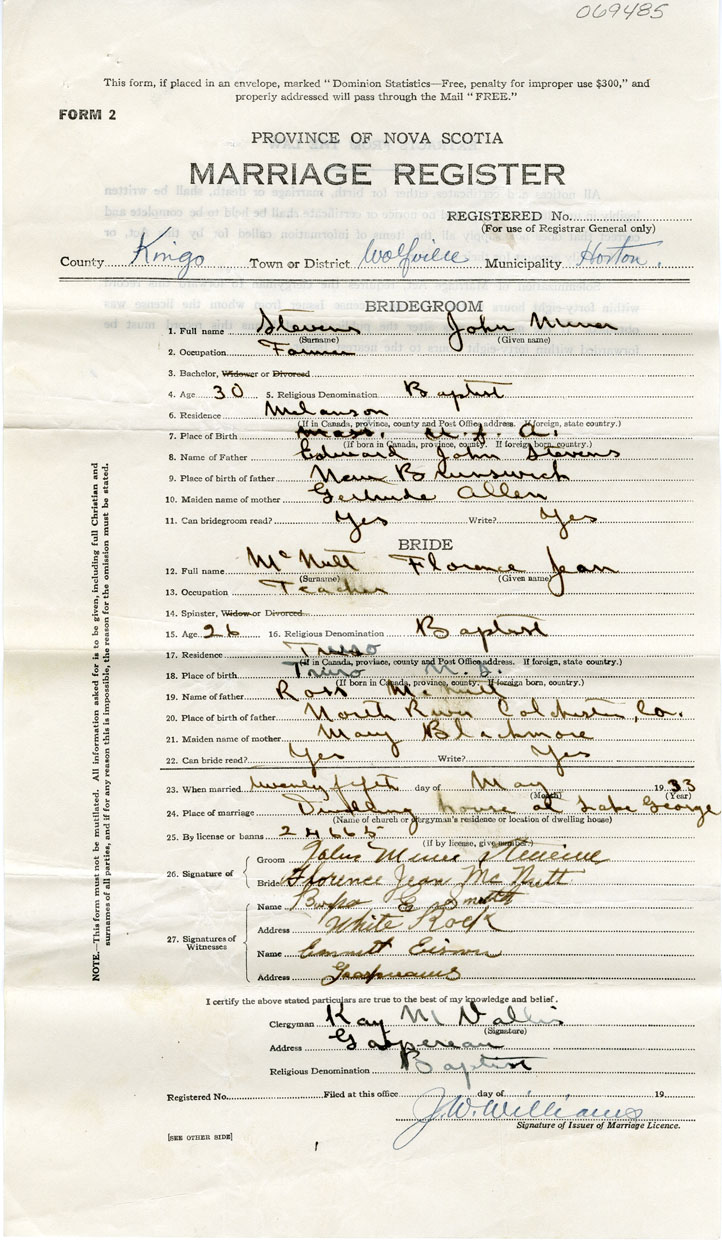 069485
This form, if placed in an envelope, marked "Dominion Statistics—Free, penalty for improper use $300," and
properly addressed will pass through the Mail "FREE."
FORM 2
PROVINCE OF NOVA SCOTIA
MARRIAGE REGISTER
REGISTERED No.
(For use of Registrar General only)
County Kings Town or District Wolfville Municipality Horton.
BRIDEGROOM
1. Full name Stevens John Miner
(Surname) (Given name)
2. Occupation Farmer
3. Bachelor, Widower or Divorced
4. Age 30 5. Religious Denomination Baptist
6. Residence Melanson
(If in Canada, province, county and Post Office address. If foreign, state country.)
7. Place of Birth Mass. U. S. A.
(If born in Canada, province, county. If foreign born, country.)
8. Name of Father Edward John Stevens
9. Place of birth of father New Brunswick
10. Maiden name of mother Gertrude Allen
11. Can bridegroom read? Yes Write? Yes
BRIDE
12. Full name McNutt Florence Jean
(Surname) (Given name)
13. Occupation Teacher
14. Spinster, Widow or Divorced
15. Age 26 16. Religious Denomination Baptist
17. Residence Truro
(If in Canada, province, county and Post Office address. If foreign, state country.)
18. Place of birth Truro N. S.
(If born in Canada, province, county. If foreign born, country.)
19. Name of father Ross McNutt
20. Place of birth of father North River Colchester, Co.
21. Maiden name of mother Mary Blackmore
22. Can bride read? Yes Write? Yes
23. When married twenty fifth day of May 1933
(Month) (Year)
24. Place of marriage Dwelling house at Lake George
(Name of church or clergyman's residence or location of dwelling house)
25. By license or banns 24665
(If by license, give number.)
26. Signature of
Groom John Miner Stevens
Bride Florence Jean McNutt
27. Signatures of Witnesses
Name E Smith
Address White Rock
Name Emmett
Address Gaspereaux
I certify the above stated particulars are true to the best of my knowledge and belief.
Clergyman Kay M
(Signature)
Address Gaspereau
Religious Denomination Baptist
Registered No. Filed at this office day of 19
J.W. Williams
Signature of Issuer of Marriage Licence.
[SEE OTHER SIDE]
NOTE.—This form must not be mutilated. All information asked for is to be given, including full Christian and
surnames of all parties, and if for any reason this is impossible, the reason for the omission must be stated.